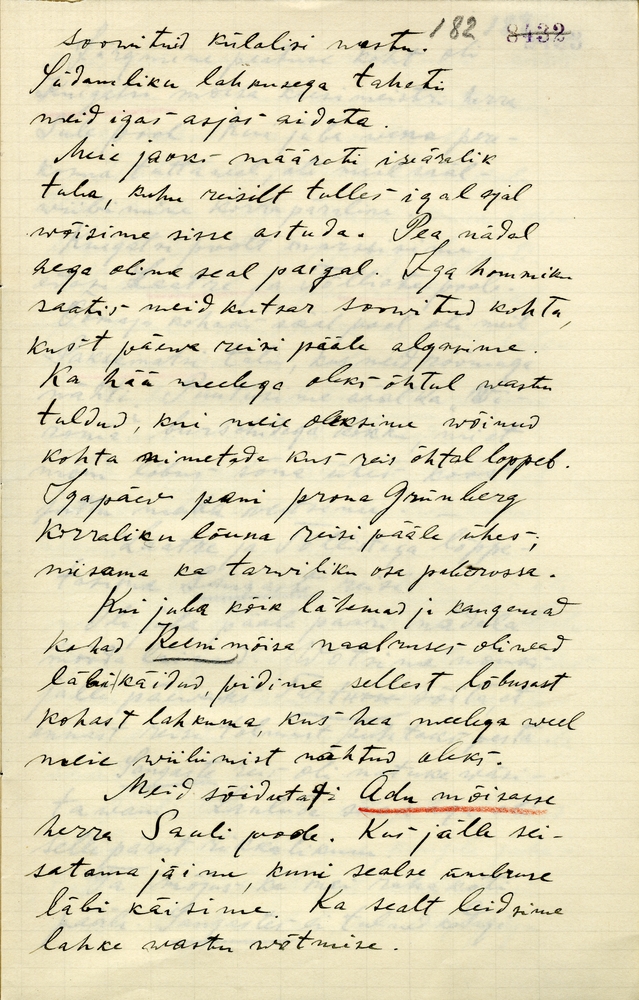 182 8432
soowitud külalisi wastu.
Südamliku lahkusega taheti
meid igas asjas aidata.
Meie jaoks määrati iseäralik
tuba, kuhu reisilt tulles igal ajal
wõisime sisse astuda. Pea nädal
aega olime seal paigal. Iga hommiku
saatis meid kutsar soowitud kohta,
kust päewa reisi pääle algasime.
Ka hää meelega oleks õhtul wastu
tuldud, kui meie oleksime wõinud
kohta nimetada kus reis õhtal loppeb.
Igapäew pani proua Grünberg
korraliku lõuna reisi pääle ühes,
niisama ka tarwiliku osa paberossa.
Kui juba kõik lähemad ja kaugemad
kohad Keeni mõisa naabruses oliwad
läbi käidud, pidime sellest lõbusast
kohast lahkuma, kus hea meelega weel
meie wiibimist nähtud oleks.
Meid sõidutati Adu mõisasse
herra Sauli poole. Kus jälle sei-
satama jäime, kuni sealse ümbruse
läbi käisime. Ka sealt leidsime
lahke wastu wõtmise.